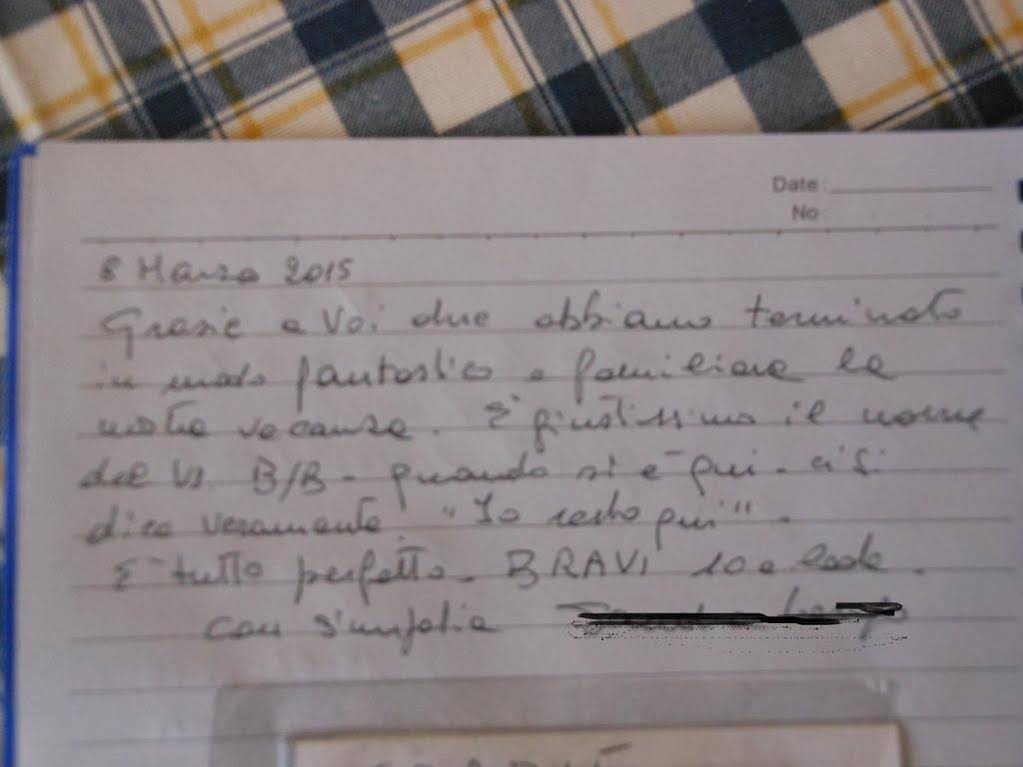 Date:
No
8 Marzo 2015
Grazie a Voi due abbiamo terminato
in modo fantastico e familiare la
nostra vacanza. E' giustissimo il nome
del Vs B/B - quando si è qui - ci si
dice veramente "Io resto qui" -
E' tutto perfetto - BRAVI 10 e lode.
con simpatia